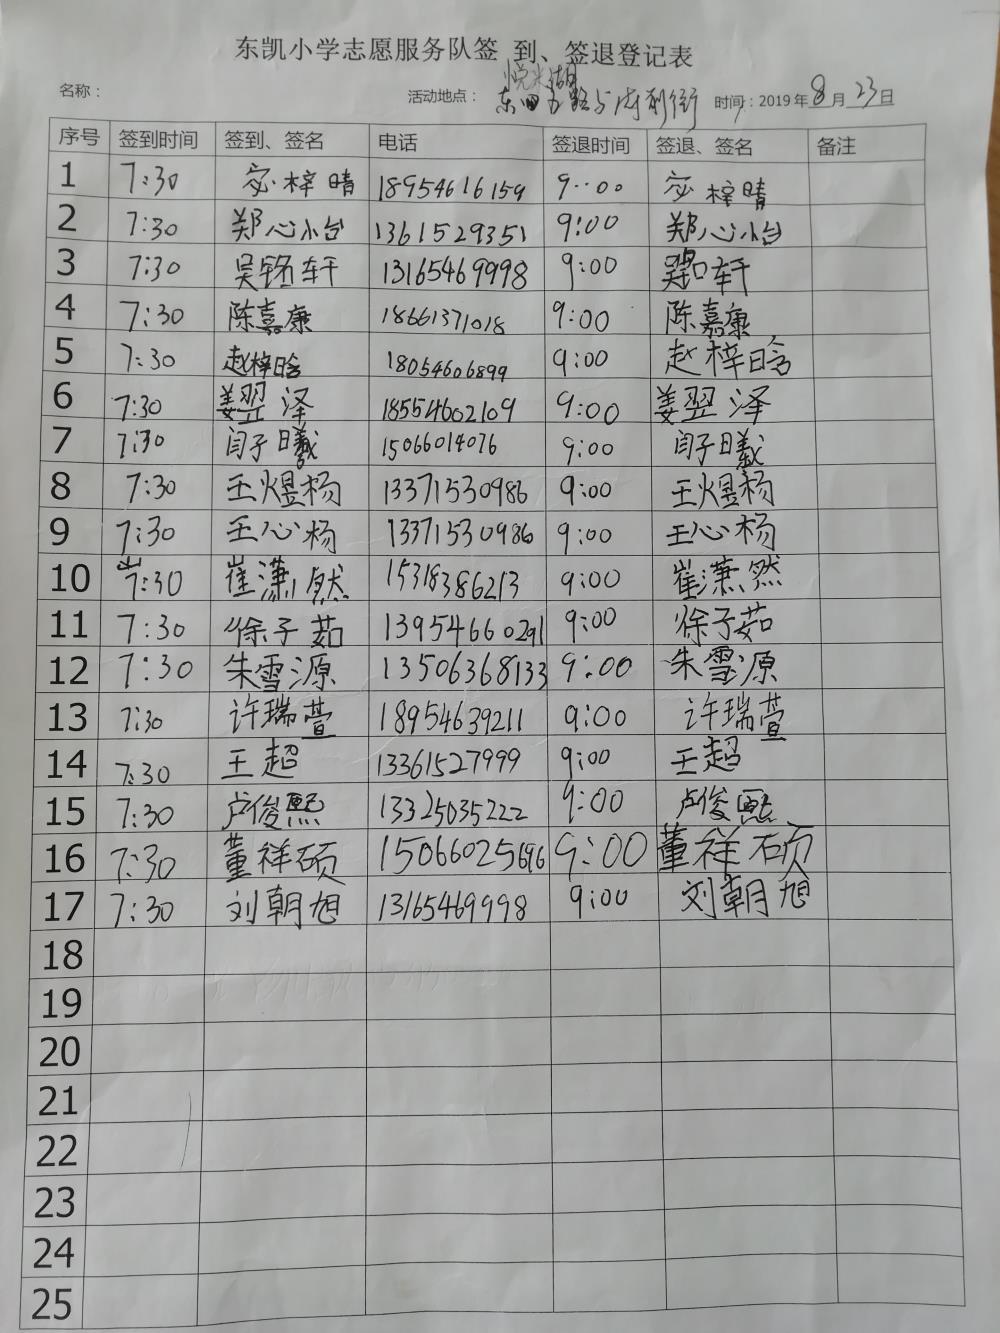 东凯小学志愿服务队签 到、签退登记表
名称： 活动地点： 悦来湖 时间：2019年8月23日
序号 签到时间 签到、签名 电话 签退时间 签退、签名 备注
1 7:30 宓梓晴 18954616159 9:00 宓梓晴
2 7:30 郑心怡 13615293351 9:00 郑心怡
3 7:30 吴铭轩 13165469998 9:00 轩
4 7:30 陈嘉康 18661371018 9:00 陈嘉康
5 7:30 赵梓晗 18054606899 9:00 赵梓晗
6 7:30 姜翌泽 18554602109 9:00 姜翌泽
7 7:30 闫子曦 15066014076 9:00 闫子曦
8 7:30 王煜杨 13371530986 9:00 王煜杨
9 7:30 王心杨 13371530986 9:00 王心杨
10 7:30 崔潇然 15318386213 9:00 崔潇然
11 7:30 徐子茹 13954660291 9:00 徐子茹
12 7:30 朱雪源 13506368133 9:00 朱雪源
13 7:30 许瑞萱 18954639211 9:00 许瑞萱
14 7:30 王超 13361527999 9:00 王超
15 7:30 卢俊熙 13325035222 9:00 卢俊熙
16 7:30 董祥硕 15066025696 9:00 董祥硕
17 7:30 刘朝旭 13165469998 9:00 刘朝旭
18
19
20
21
22
23
24
25